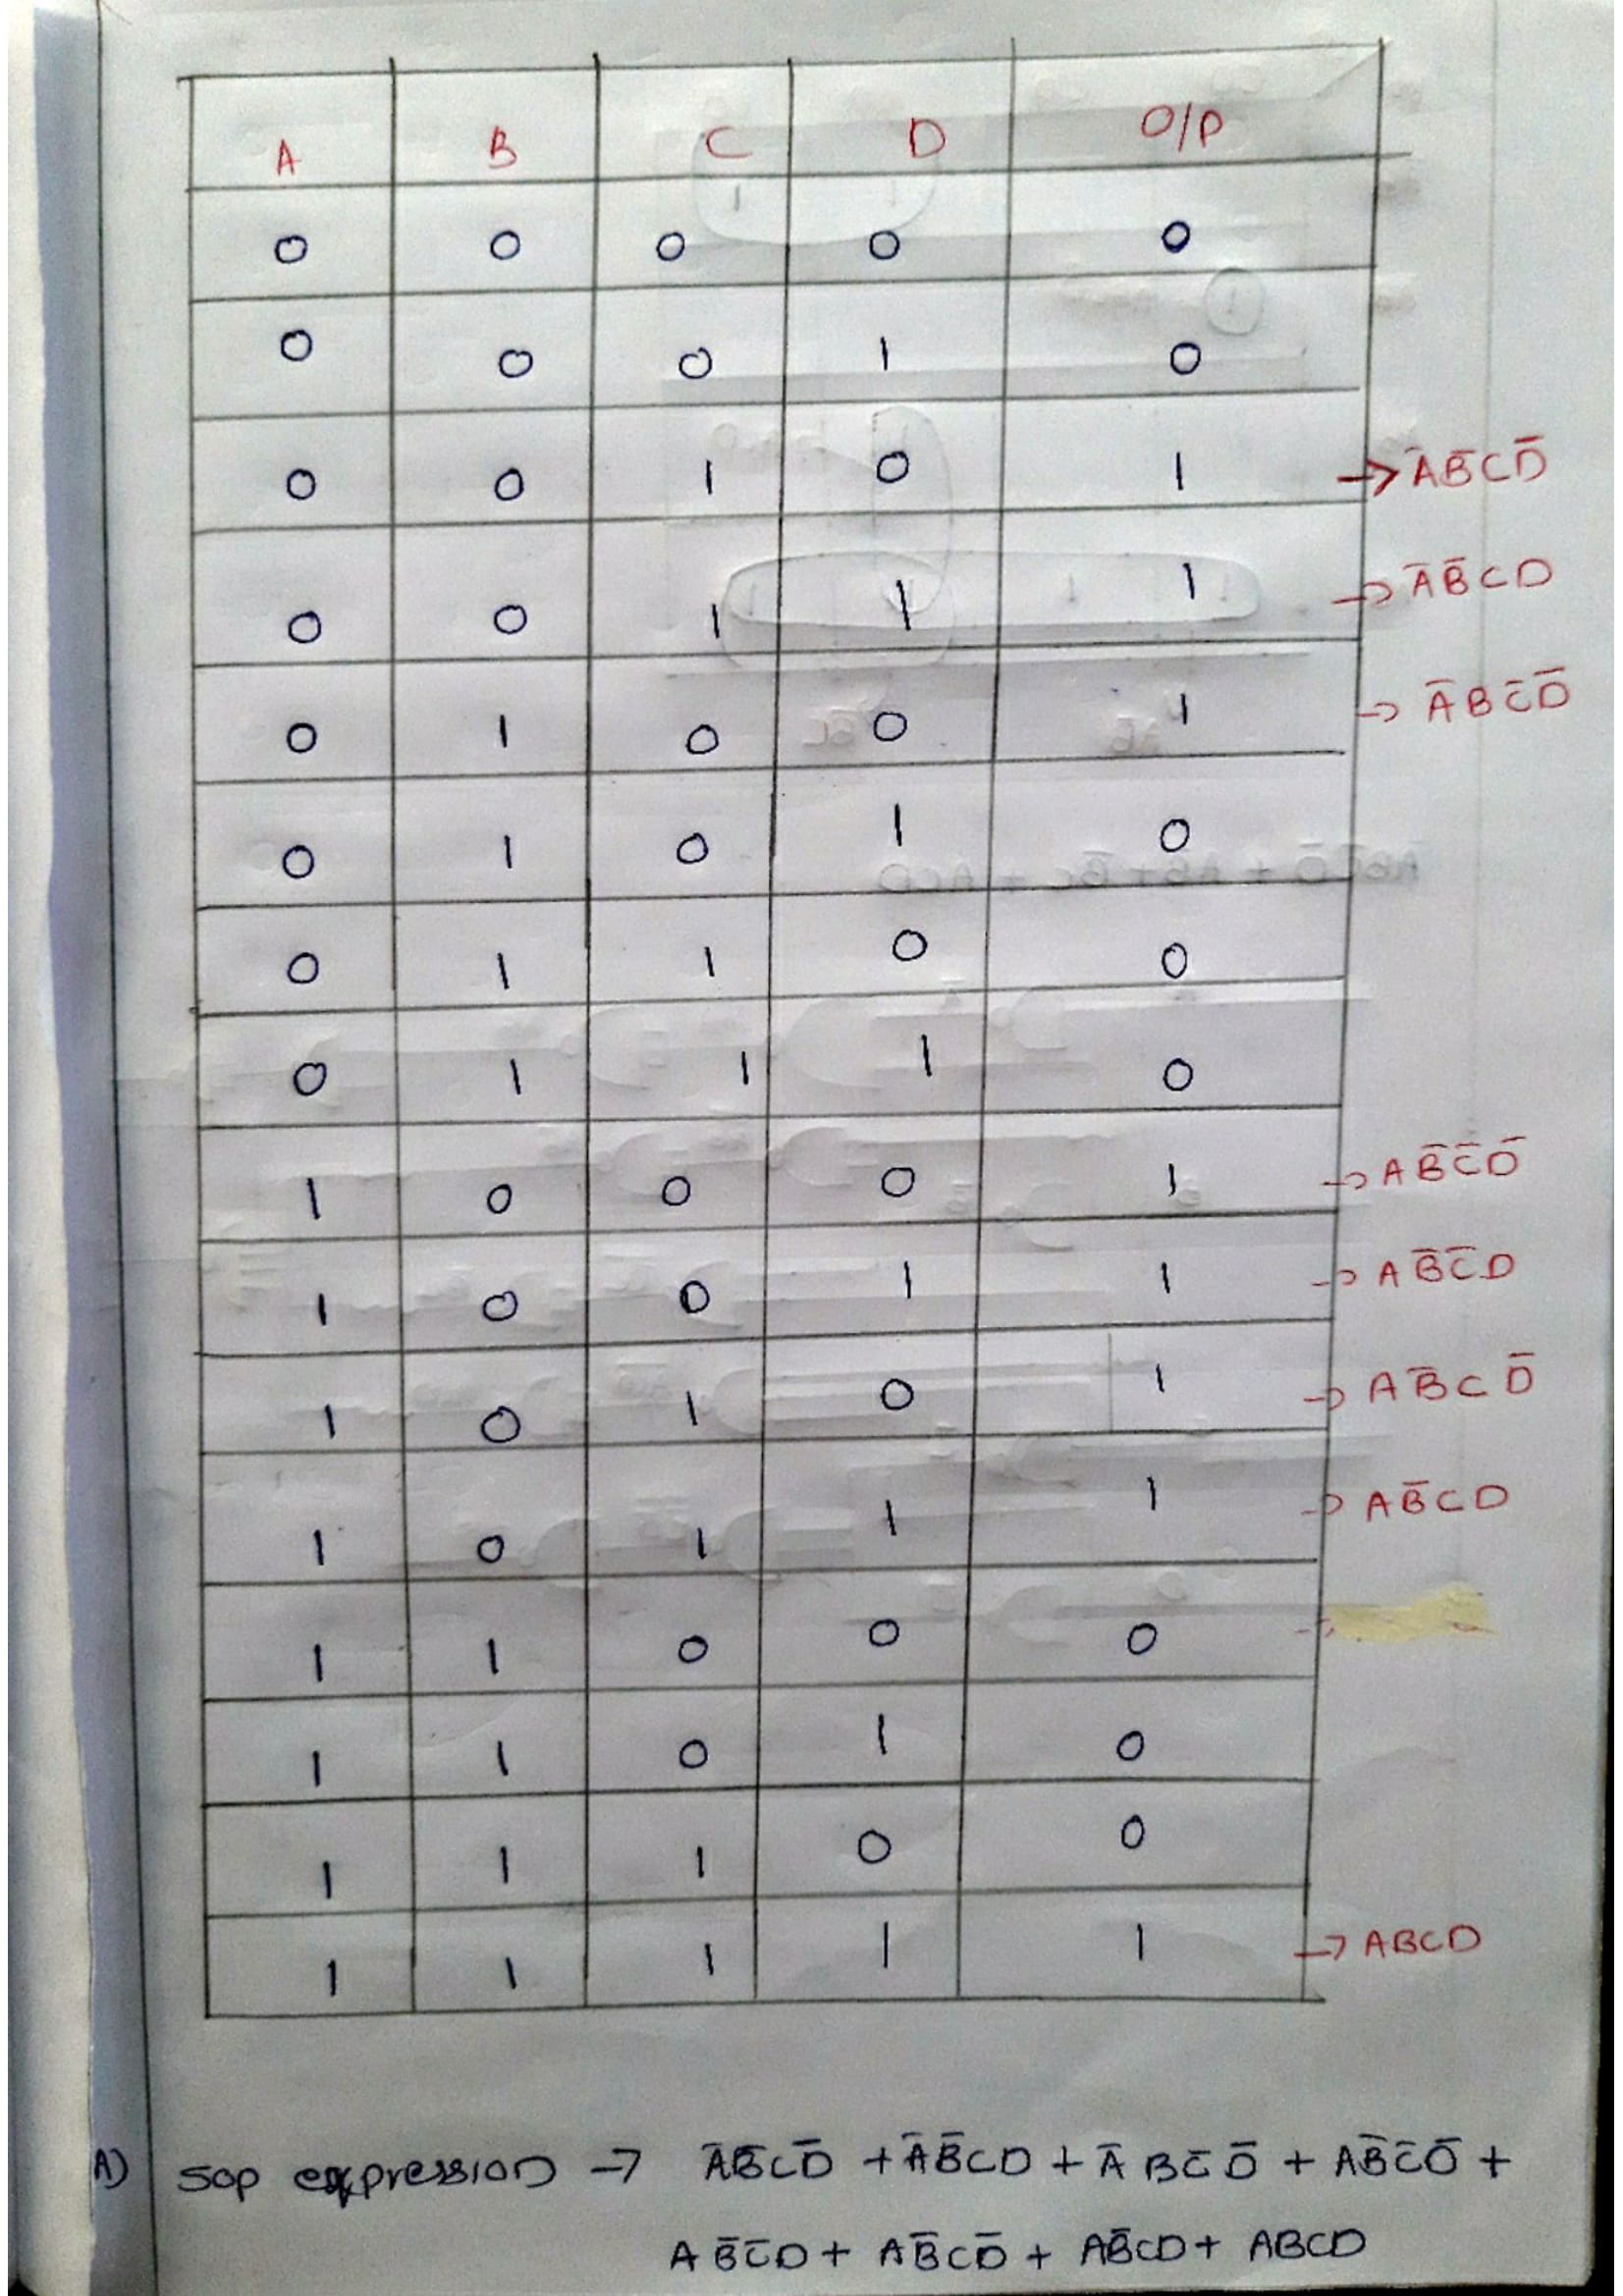 A B C D O/P
0 0 0 0 0
0 0 0 1 0
0 0 1 0 1 → A̅B̅CD̅
0 0 1 1 1 → A̅B̅CD
0 1 0 0 1 → A̅BC̅D̅
0 1 0 1 0
0 1 1 0 0
0 1 1 1 0
1 0 0 0 1 → AB̅C̅D̅
1 0 0 1 1 → AB̅C̅D
1 0 1 0 1 → AB̅CD̅
1 0 1 1 1 → AB̅CD
1 1 0 0 0
1 1 0 1 0
1 1 1 0 0
1 1 1 1 1 → ABCD
A) SOP expression → A̅B̅CD̅ + A̅B̅CD + A̅BC̅D̅ + AB̅C̅D̅ +
AB̅C̅D + AB̅CD̅ + AB̅CD + ABCD